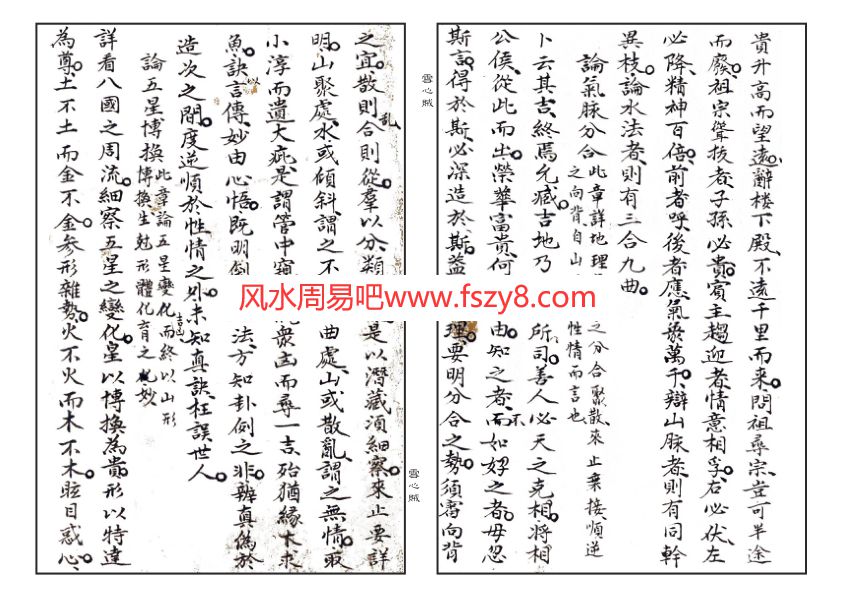 貴升高而望遠辭楼下殿不遠千里而来問祖尋宗豈可半途
而廢祖宗聳抜者子孫必貴賓主趨迎者情意相孚右必伏左
必降精神百倍前者呼後者應氣象萬千辯山脉者則有同幹
異枝論水法者則有三合九曲
論氣脉分合此章詳地理
之向背自山
之分合聚散来止乗接順逆
性情而言也
卜云其吉終焉允臧吉地乃
所司善人必天之克相将相
公侯從此而出榮華富貴何
不由知之者而如好之者毋忽
斯言得於斯必深造於斯盖
理要明分合之勢須審向背
雪心賊
之宜散則乱合則從羣以分類
是以潜藏須細察来止要詳
明山聚處水或傾斜謂之不
曲處山或散亂謂之無情取
小淳而遺大疵是謂管中窺
衆凶而尋一吉殆猶縁木求
魚訣以言傳妙由心悟既明倒
法方知卦例之非辨真偽於
造次之間度逆順於性情之外未知真訣枉誤世人
論五星博換此章論五星變化而終以山形
博換生尅形體化育之妙
詳看八國之周流細察五星之變化星以博換為貴形以特達
為尊土不土而金不金参形雜勢火不火而木不木眩目惑心
雪心賊
风水周易吧www.fszy8.com